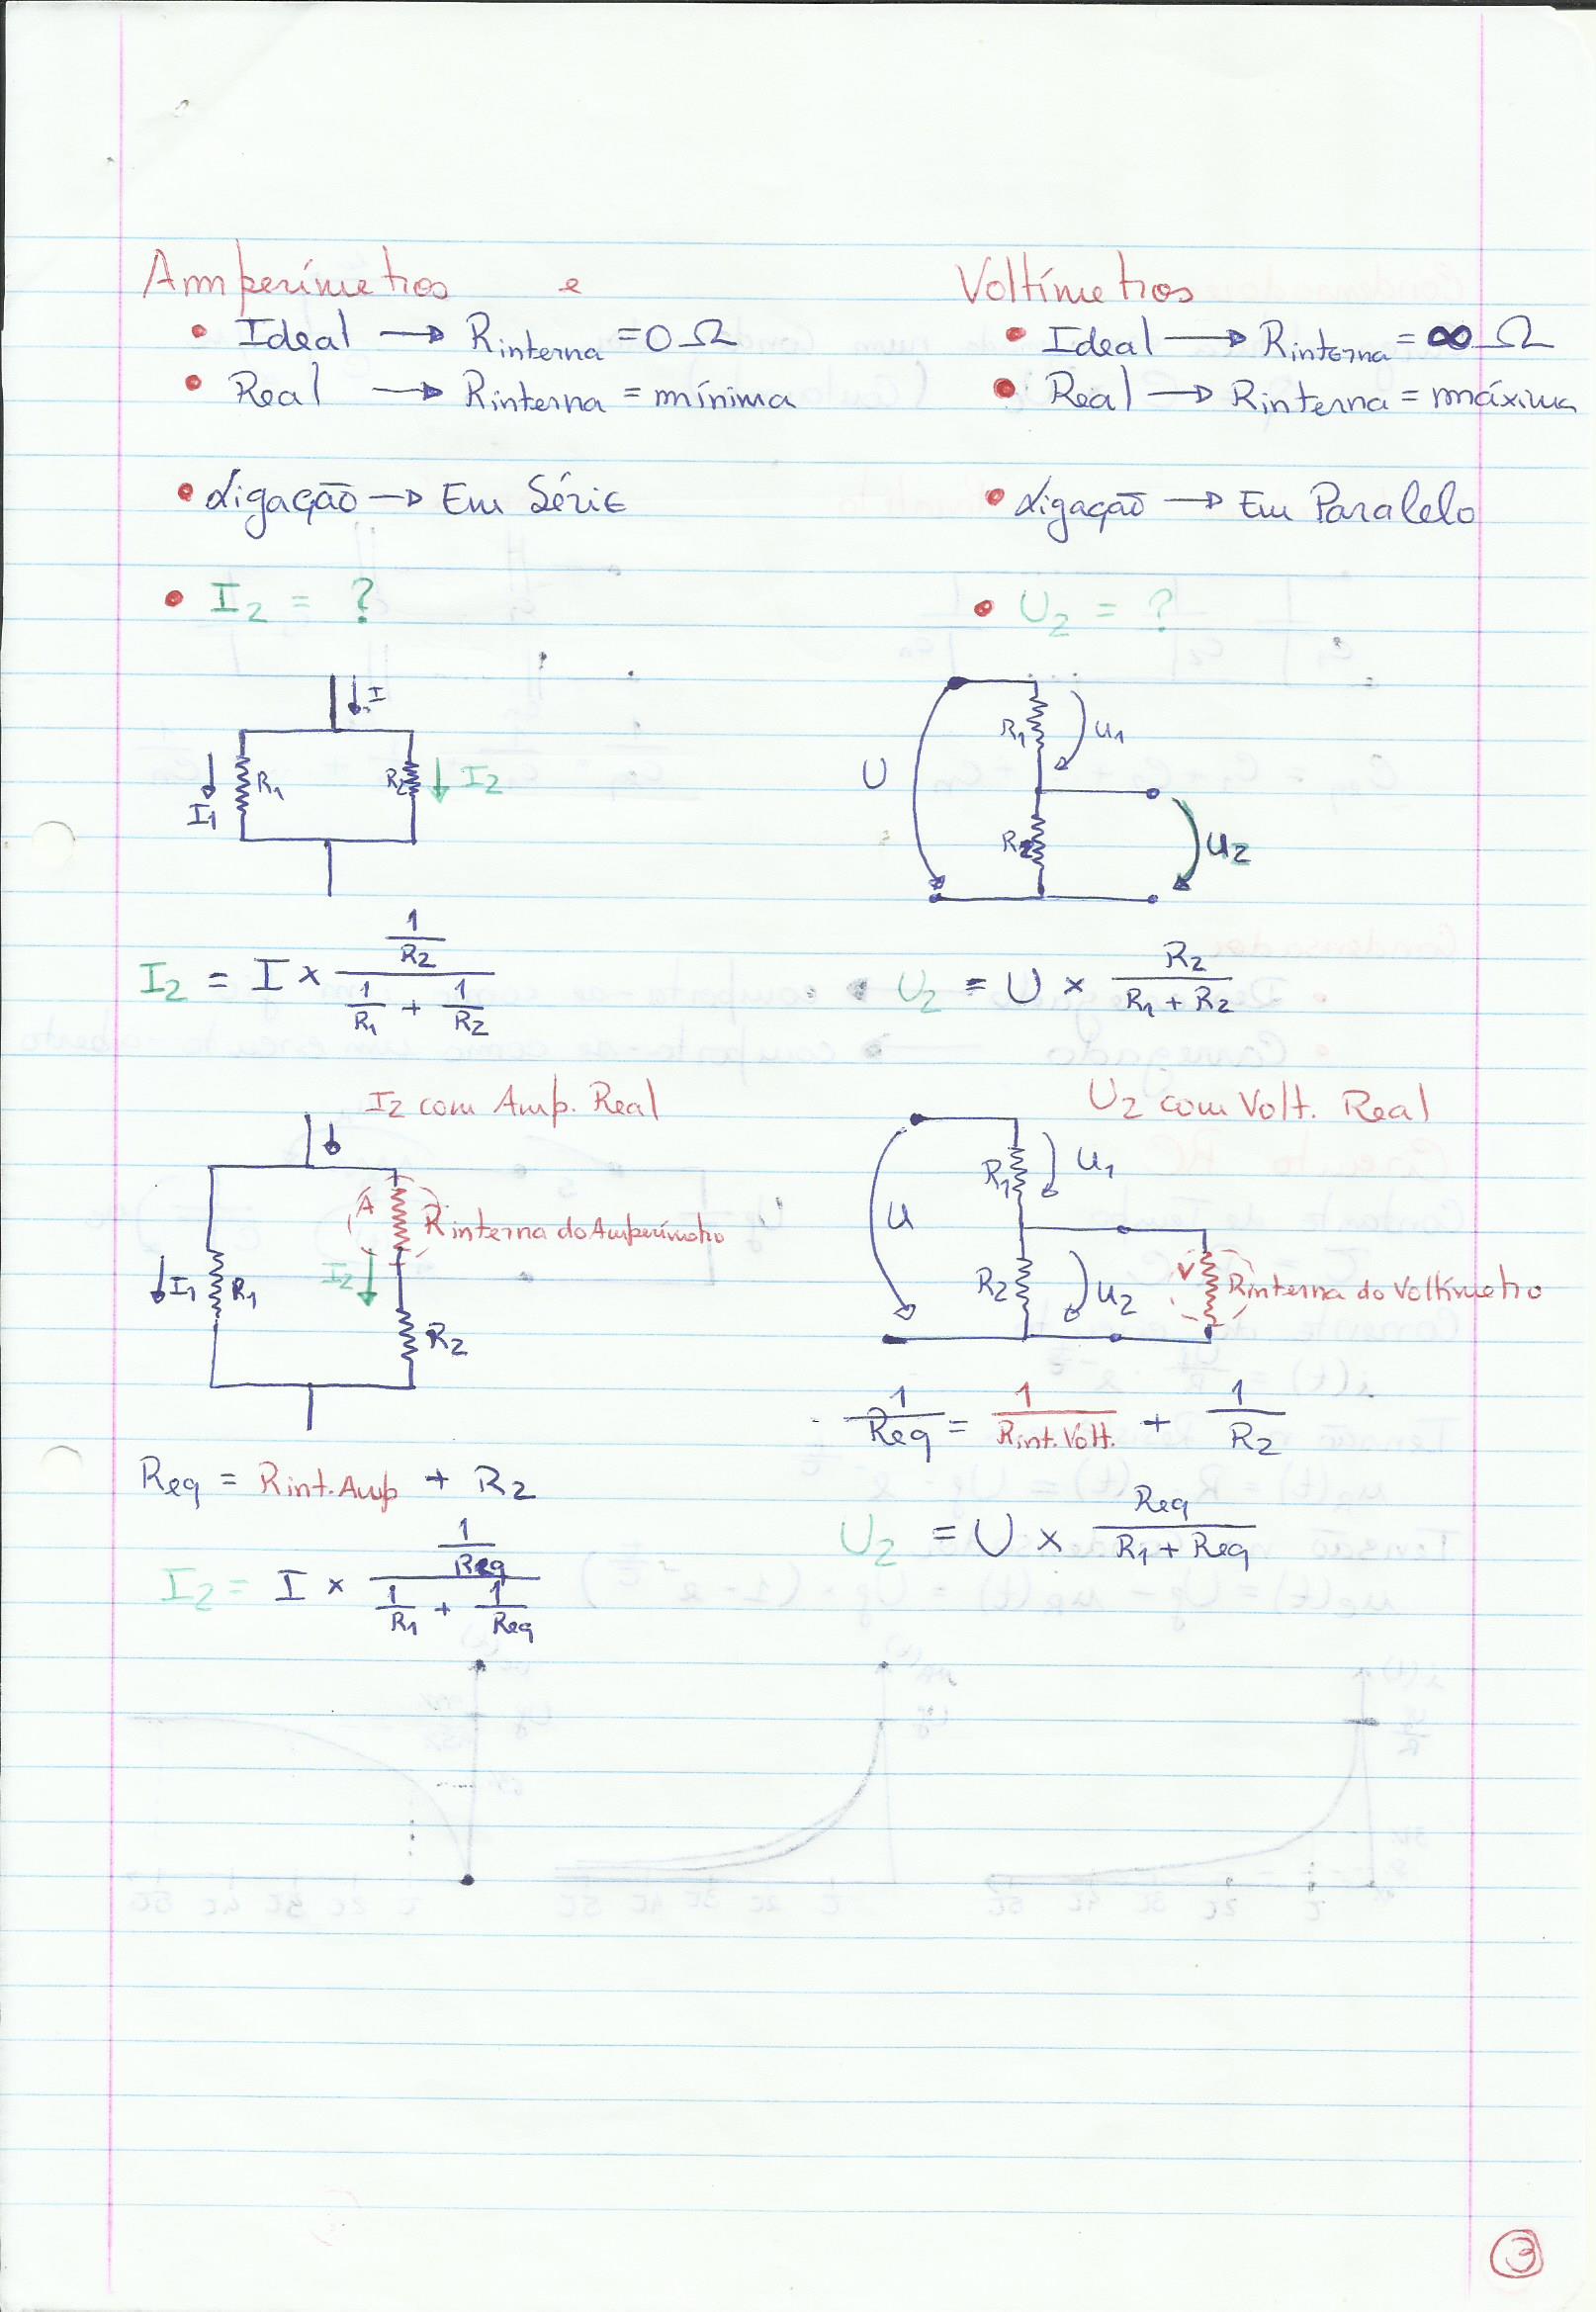 Amperímetros e Voltímetros
• Ideal → Rinterna = 0 Ω
• Real → Rinterna = mínima
• Ligação → Em Série
• I2 = ?
I
I1 R1 R2 I2
I2 = I × (1/R2) / (1/R1 + 1/R2)
I2 com Amp. Real
A Rinterna do Amperímetro
I2
I1 R1
R2
Req = Rint.Amp + R2
I2 = I × (1/Req) / (1/R1 + 1/Req)
• Ideal → Rinterna = ∞ Ω
• Real → Rinterna = máxima
• Ligação → Em Paralelo
• U2 = ?
R1 U1
U
R2 U2
U2 = U × R2 / (R1 + R2)
U2 com Volt. Real
R1 U1
U
R2 U2 V Rinterna do Voltímetro
1/Req = 1/Rint.Volt. + 1/R2
U2 = U × Req / (R1 + Req)
3